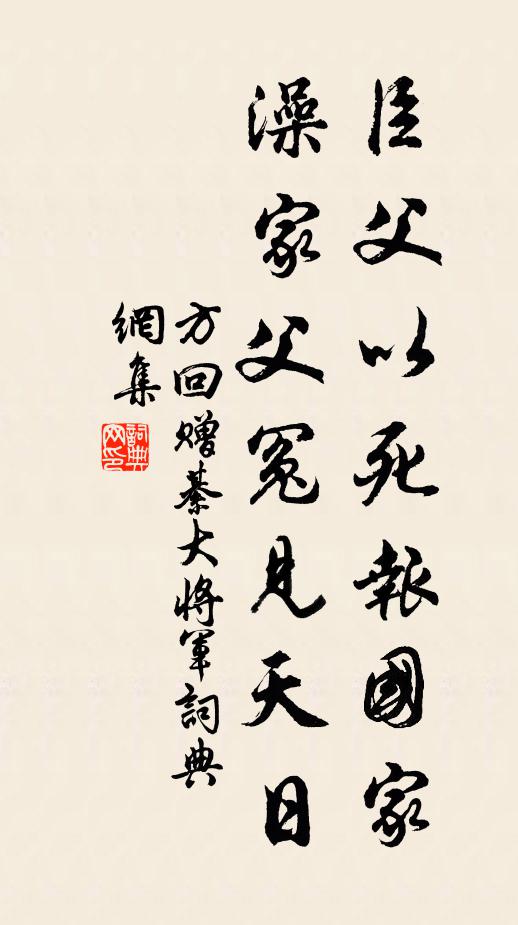 臣父以死報國家
澡家父冤見天日
方回贈綦大將軍詞典
網集
詞典網印